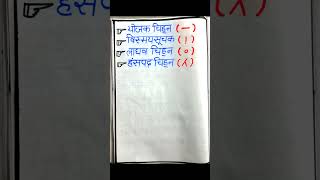 ☞योजक चिह्न (—)
☞विस्मयसूचक (।)
☞लाघव चिह्न (०)
☞हंसपद चिह्न (⁁)